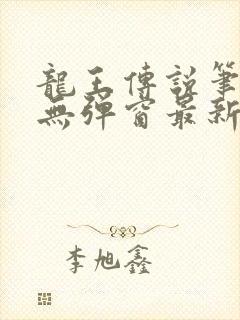 龍王傳說筆
無彈窗最新
李旭鑫